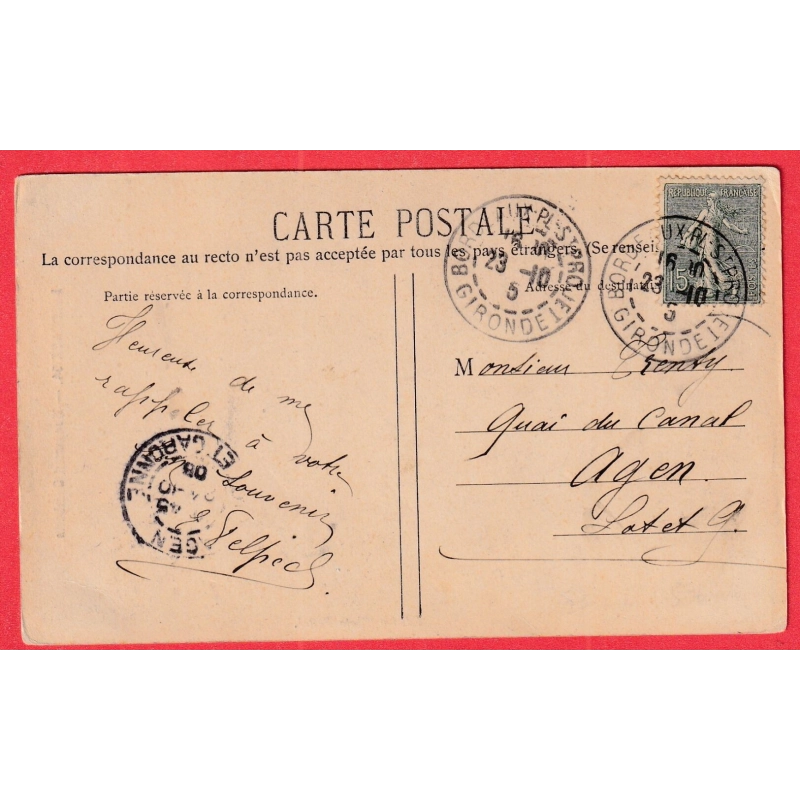 CARTE POSTALE
La correspondance au recto n'est pas acceptée par tous les pays étrangers (Se rensei
Partie réservée à la correspondance.
Adresse du destinat
RÉPUBLIQUE FRANÇAISE
15
BORD UX-PL-ST-PROJET
16 10
23 -10
5
GIRONDE
BORDE UX-PL-ST-PROJET
16 10
23 -10
5
GIRONDE
Heureuse de me
rappeler à votre
souvenir
Monsieur
Quai du Canal
Agen.
Lot et G.
GEN
ET GARONNE